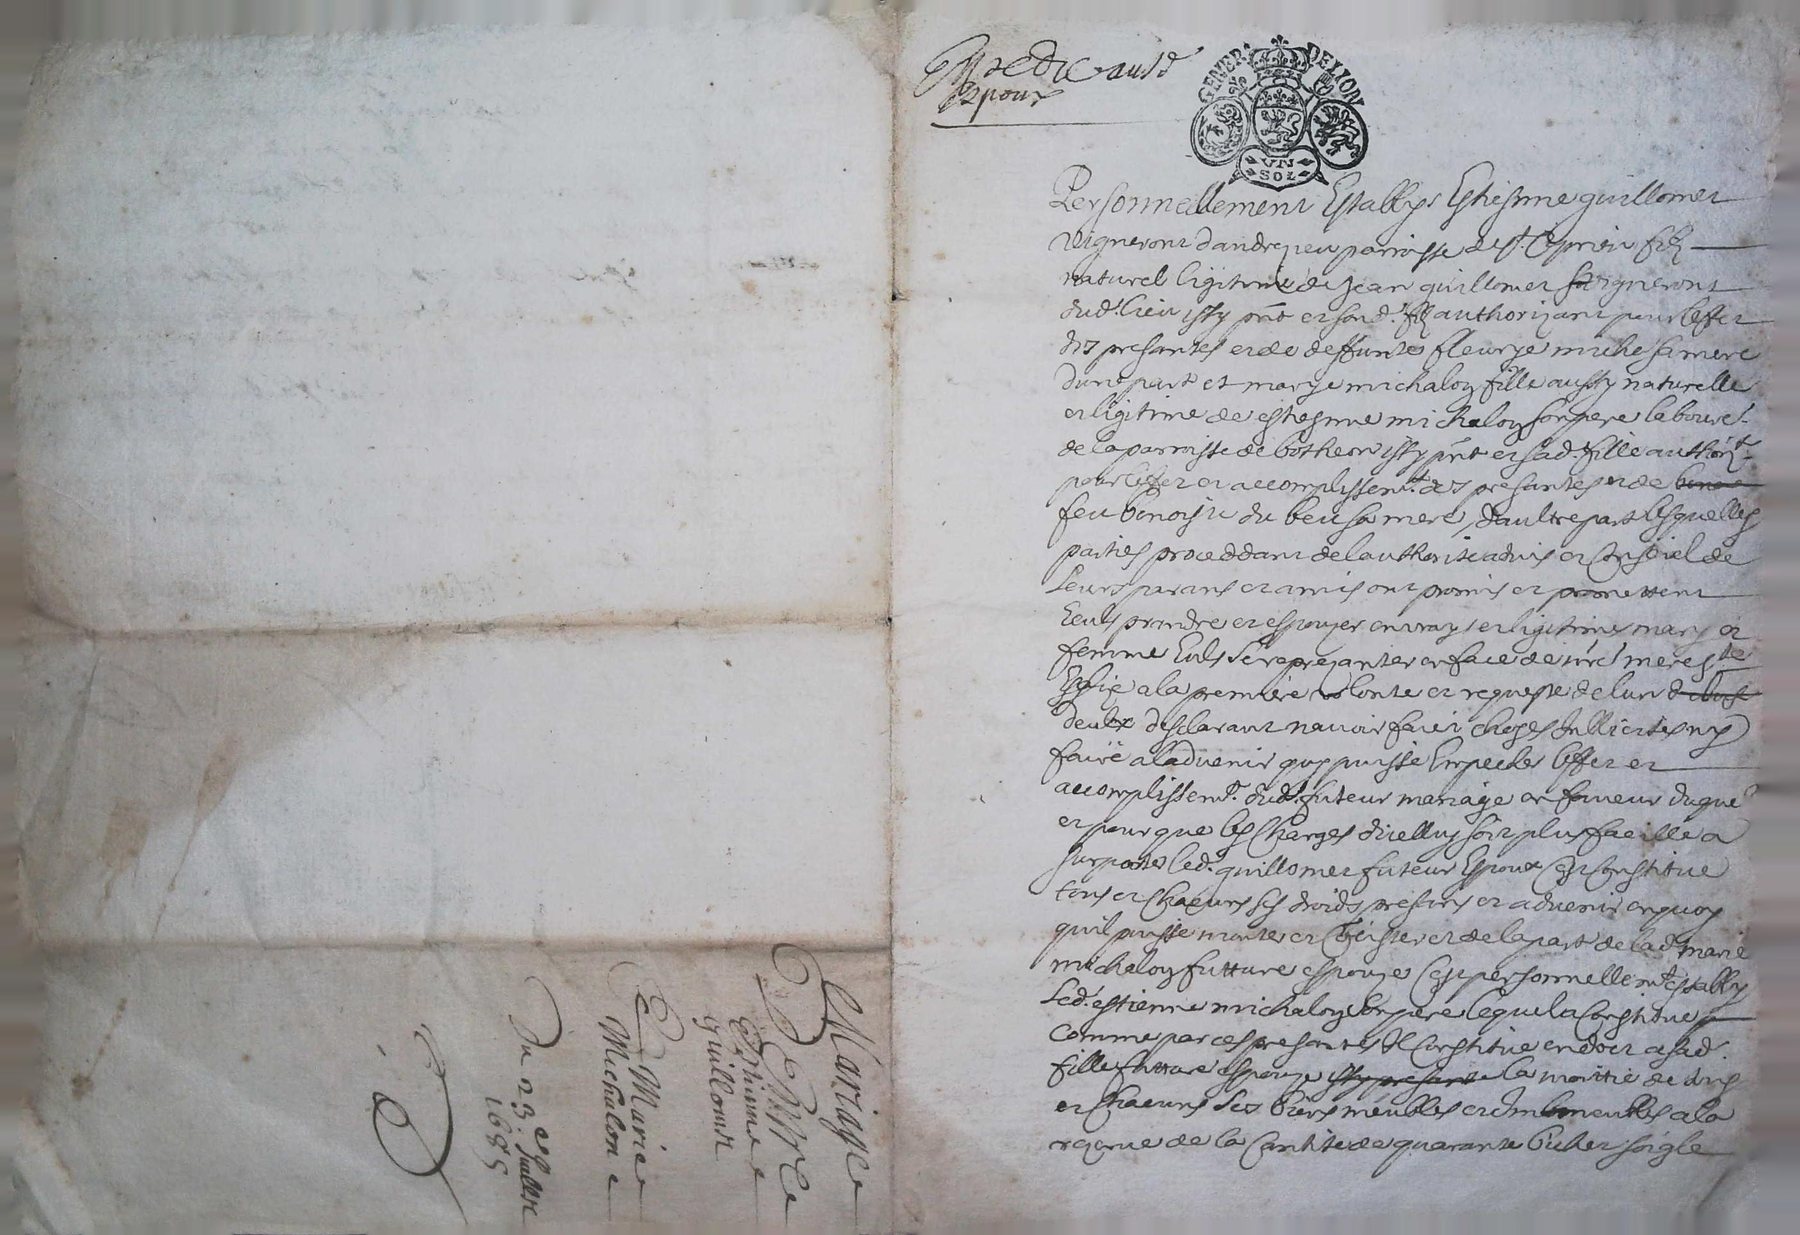 pour
GENER. DE LION
UN
SOL
Personnellement Establys Estiesnne guillomet
vigneront dandrezieu parroisse de st. Cyprien filz
naturel ligitime de Jean guillomet vigneront
dud. lieu issy pnt et sond. filz authorizant pour leffet
des presantes et de deffunte fleurye miche sa mere
dune part et marye michalon fille aussy naturelle
et ligitime de estiesnne michalon son pere laboure.
de la parroisse de botheon issy pnt et sad. fille authorizt
pour leffet et accomplissemt. des presantes et de
feu benoiste du beu sa mere, daultre part lesquelles
parties proceddant de lauthorite advis et Conseiel de
leurs parans et amis ont promis et promettent
prandre et espouzer en vrays et ligitimes mary et
femme Eulx se reprezanter en face de nre mere ste
Eglize a la premiere vollonte et requeste de lun d
deulx desclarant navoir faict chozes Illicites ny
faire a ladvenir quy puisse Empecher leffet et
accomplissemt. dud. futeur mariage en faveur duquel
et pour que les Charges dicelluy soit plus facille a
surporter led. guillomet futeur Espoux Cest Constitue
tous et Chacuns ses droicts presants et advenir en quoy
quil puisse monter et Concister et de la part de lad. marie
michalon future espouze Cest personnellemt estably
led. estienne michalon son pere lequel a Constitue
comme par ces presantes Il Constitue en dot a sad.
fille future espouze issy presante la moitie de tous
et Chacuns ses biens meubles et Immeubles a la
rezerve de la Cantite de quarante bichet soigle
Mariage
DEntre
Estienne
guillomet
Et Marie
Michalon
Du 23e Juillet
1685